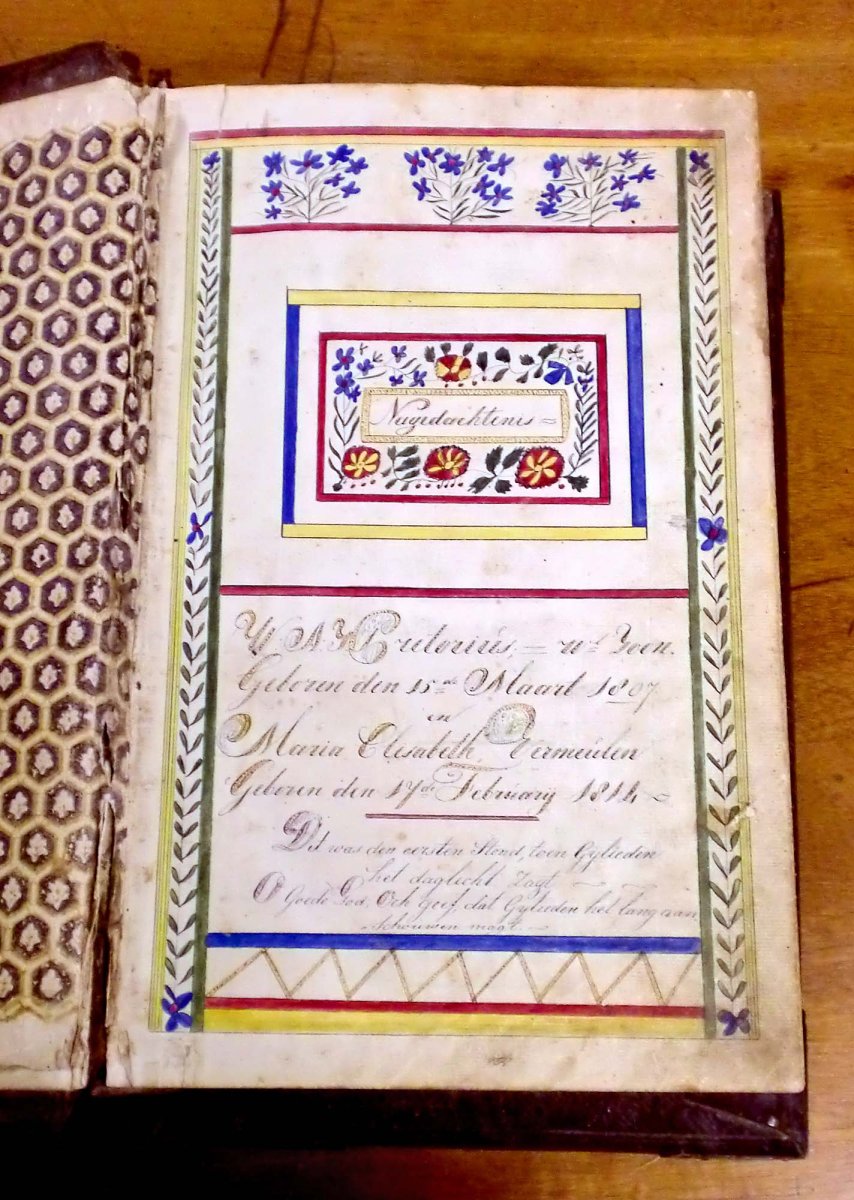 Nagedachtenis =
W. A. J. Pretorius = Wd. Zoon.
Geboren den 15de Maart 1807
en
Maria Elisabeth Vermeulen
Geboren den 17de February 1814
Dit was den eersten Stond, toen Gylieden
het daglicht Zagt
O Goede God, Och geef, dat Gylieden het lang aan
schouwen moogt